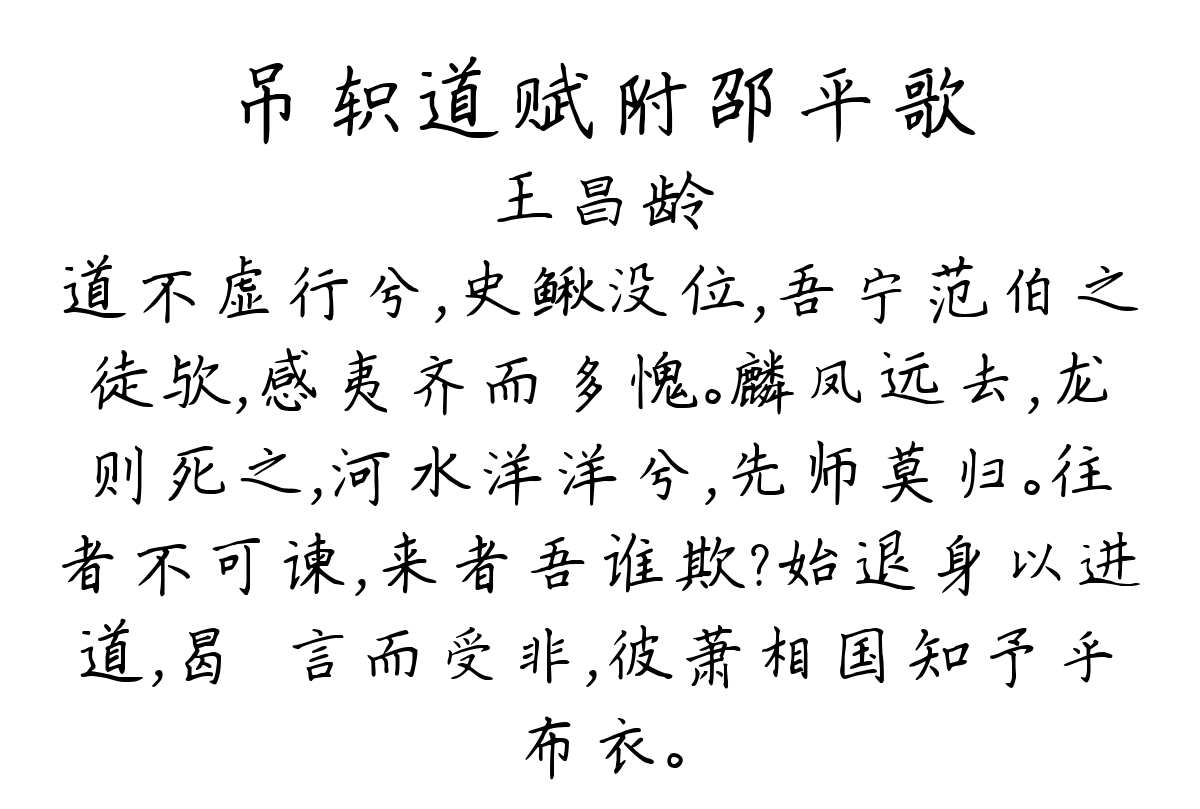 吊轵道赋附邵平歌
王昌龄
道不虚行兮,史鳅没位,吾宁范伯之
徒欤,感夷齐而多愧。麟凤远去,龙
则死之,河水洋洋兮,先师莫归。往
者不可谏,来者吾谁欺?始退身以进
道,曷 言而受非,彼萧相国知予乎
布衣。